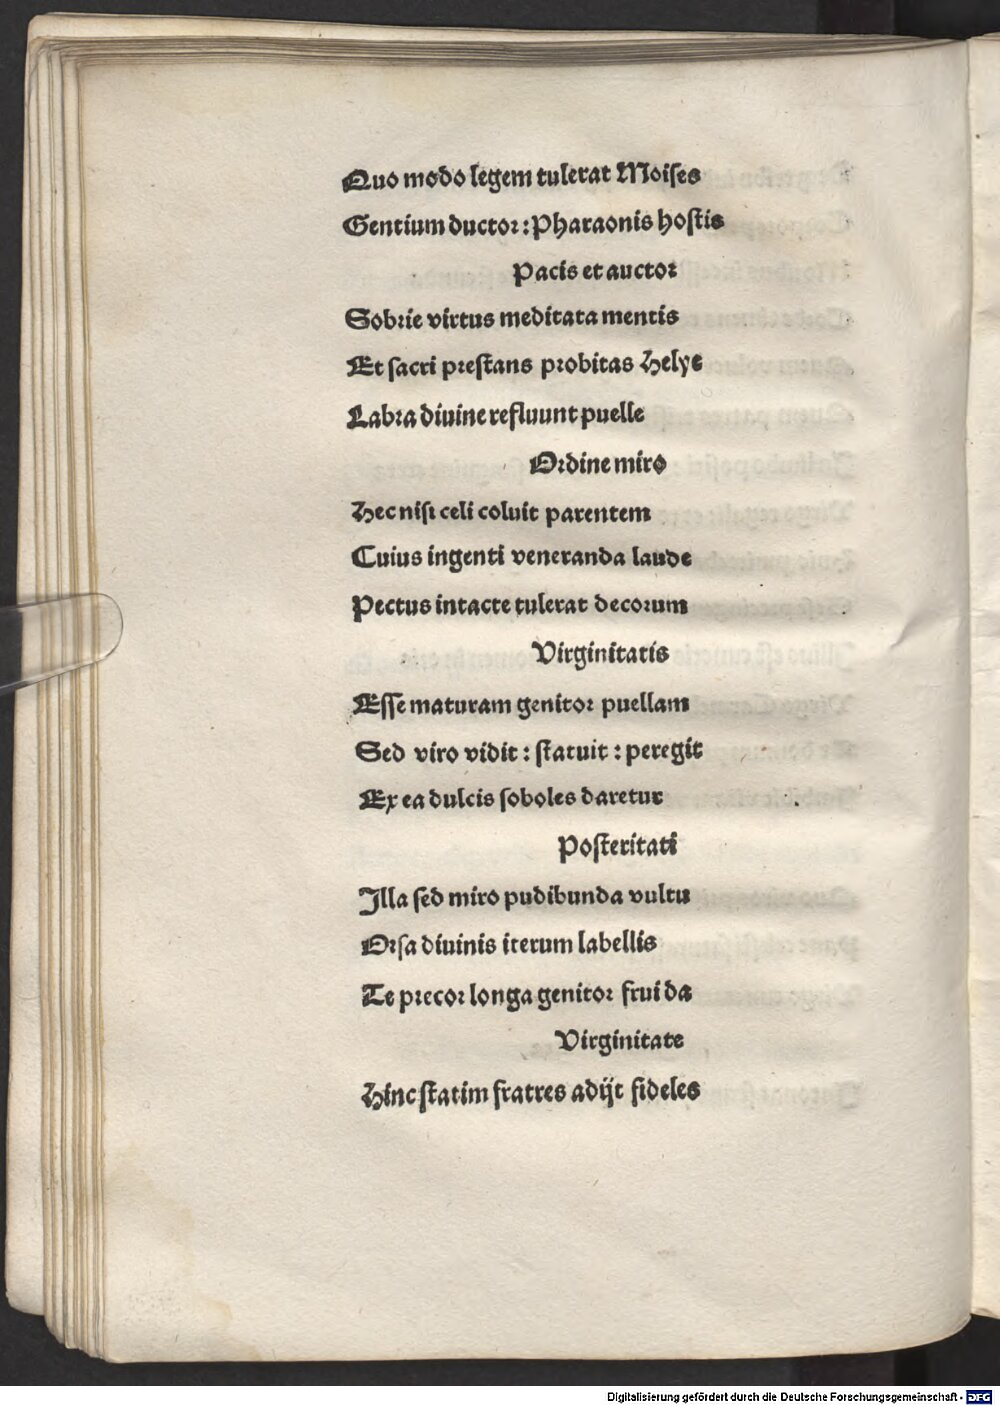 Quo modo legem tulerat Moises
Gentium ductor: Pharaonis hostis
Pacis et auctor
Sobrie virtus meditata mentis
Et sacri prestans probitas Helye
Labra diuine refluunt puelle
Ordine miro
Hec nisi celi coluit parentem
Cuius ingenti veneranda laude
Pectus intacte tulerat decorum
Virginitatis
Esse maturam genitor puellam
Sed viro vidit: statuit: peregit
Ex ea dulcis soboles daretur
Posteritati
Illa sed miro pudibunda vultu
Orsa diuinis iterum labellis
Te precor longa genitor frui da
Virginitate
Hinc statim fratres adijt fideles
Digitalisierung gefördert durch die Deutsche Forschungsgemeinschaft - DFG